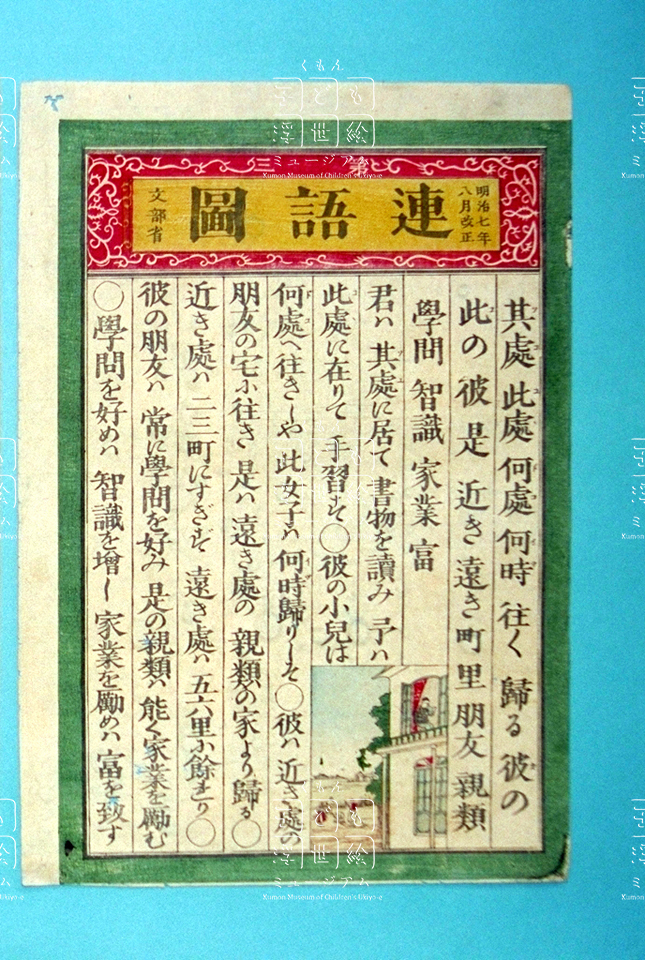 第三
連語圖
明治七年
八月改正
文部省
其處 此處 何處 何時 往く 歸る 彼の
此の 彼 是 近き 遠き 町 里 朋友 親類
學問 智識 家業 富
君ハ 其處に居て 書物を讀み 予ハ
此處に在りて 手習す 〇彼の小兒は
何處へ往きしや 此女子ハ 何時歸りしぞ〇彼ハ 近き處の
朋友の宅ニ往き 是ハ 遠き處の 親類の家より歸る〇
近き處ハ 二三町にすぎず 遠き處ハ 五六里ニ餘れり〇
彼の朋友ハ 常に學問を好み 是の親類ハ 能く家業を勵む
〇學問を好めハ 智識を增し 家業を勵めハ 富を致す
くもん
子ども
浮世絵
ミュージアム
Kumon Museum of Children's Ukiyo-e